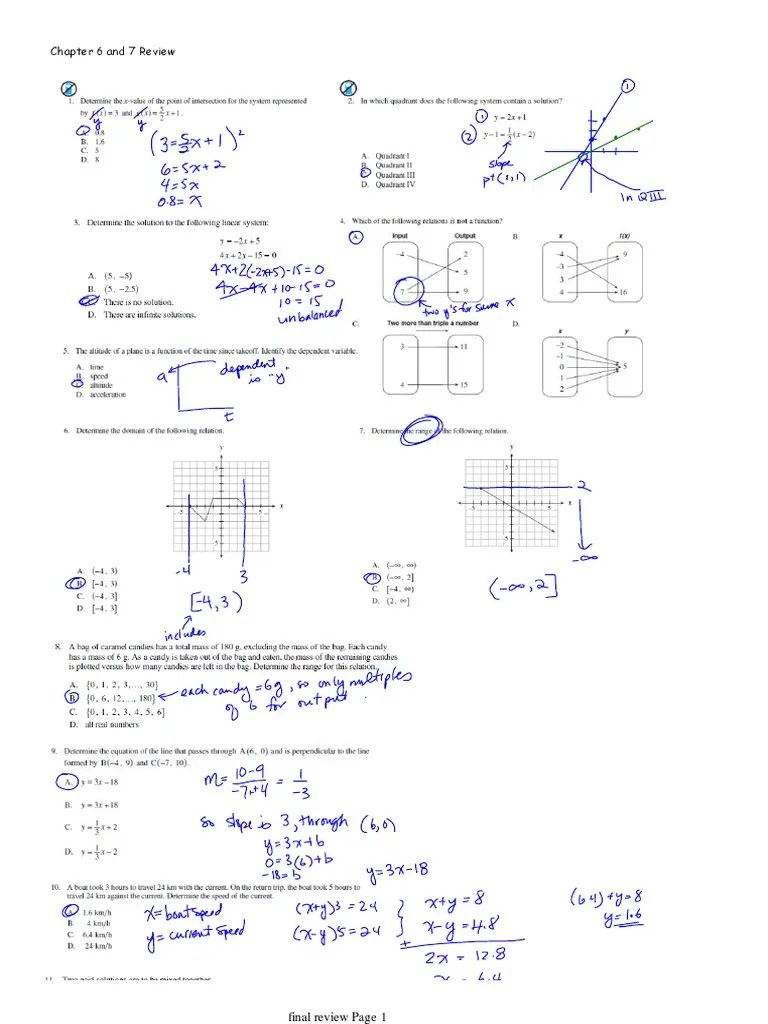 Chapter 6 and 7 Review
1. Determine the x-value of the point of intersection for the system represented
by f(x) = 3 and g(x) = 5/2 x + 1.
y y
A. 0.8
B. 1.6
C. 5
D. 8
(3 = 5/2 x + 1)2
6 = 5x + 2
4 = 5x
0.8 = x
2. In which quadrant does the following system contain a solution?
① y = 2x + 1
② y − 1 = 1/2 (x − 2)
slope
pt (2, 1)
A. Quadrant I
B. Quadrant II
C. Quadrant III
D. Quadrant IV
①
②
In QIII
3. Determine the solution to the following linear system:
y = −2x + 5
4x + 2y − 15 = 0
A. (5, −5)
B. (5, −2.5)
C. There is no solution.
D. There are infinite solutions.
4x + 2(-2x+5) - 15 = 0
4x - 4x + 10 - 15 = 0
10 = 15
unbalanced
4. Which of the following relations is not a function?
A. Input Output
−4 2
5
7 9
two y's for same x
B. x f(x)
−4 9
−3
3
4 16
C. Two more than triple a number
3 11
4 15
D. x y
−2
−1
0 5
1
2
5. The altitude of a plane is a function of the time since takeoff. Identify the dependent variable.
A. time
B. speed
C. altitude
D. acceleration
a
t
dependent
is "y"
6. Determine the domain of the following relation.
y
5
-5 5 x
-5
-4 3
A. (−4, 3)
B. [−4, 3)
C. (−4, 3]
D. [−4, 3]
[-4, 3)
includes
7. Determine the range of the following relation.
y
5
2
-5 5 x
-5
-∞
A. (−∞, ∞)
B. (−∞, 2]
C. [−4, ∞)
D. (2, ∞]
(-∞, 2]
8. A bag of caramel candies has a total mass of 180 g, excluding the mass of the bag. Each candy
has a mass of 6 g. As a candy is taken out of the bag and eaten, the mass of the remaining candies
is plotted versus how many candies are left in the bag. Determine the range for this relation.
A. {0, 1, 2, 3,…, 30}
B. {0, 6, 12,…, 180}
C. {0, 1, 2, 3, 4, 5, 6}
D. all real numbers
each candy = 6g, so only multiples
of 6 for output.
9. Determine the equation of the line that passes through A(6, 0) and is perpendicular to the line
formed by B(−4, 9) and C(−7, 10).
A. y = 3x − 18
B. y = 3x + 18
C. y = 1/3 x + 2
D. y = 1/3 x − 2
m = 10-9/-7+4 = 1/-3
so slope is 3, through (6,0)
y = 3x + b
0 = 3(6) + b
-18 = b
y = 3x - 18
10. A boat took 3 hours to travel 24 km with the current. On the return trip, the boat took 5 hours to
travel 24 km against the current. Determine the speed of the current.
A. 1.6 km/h
B. 4 km/h
C. 6.4 km/h
D. 24 km/h
x = boat speed
y = current speed
(x+y)3 = 24
(x-y)5 = 24
x + y = 8
x - y = 4.8
+
2x = 12.8
x = 6.4
(6.4) + y = 8
y = 1.6
11. Two acid solutions are to be mixed together
final review Page 1